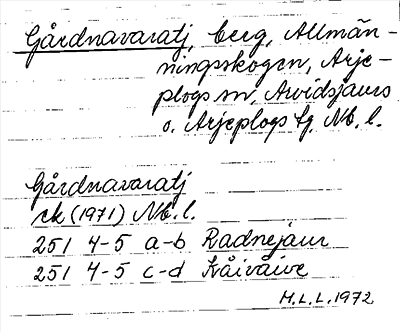 Gårdnavaratj, berg, Allmän-
ningsskogen, Arje-
plogs sn, Arvidsjaurs
o. Arjeplogs tg. Nb. l.
Gårdnavaratj
ek (1971) Nb. l.
251 4-5 a-b Radnejaur
251 4-5 c-d Kåivåive
M. L. L. 1972